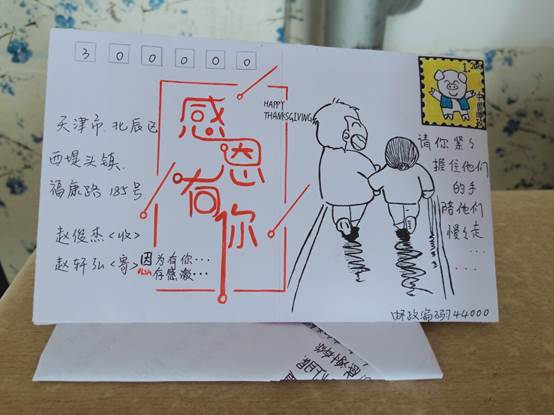 300000
天津市北辰区
西堤头镇
福康路185号
赵俊杰<收>
赵轩弘<寄>
感恩有你
HAPPY
THANKSGIVING
因为有你…
所以存感激…
1.20
中国邮政
请你紧紧
握住他们
的手
陪他们
慢慢走
……
邮政编码744000